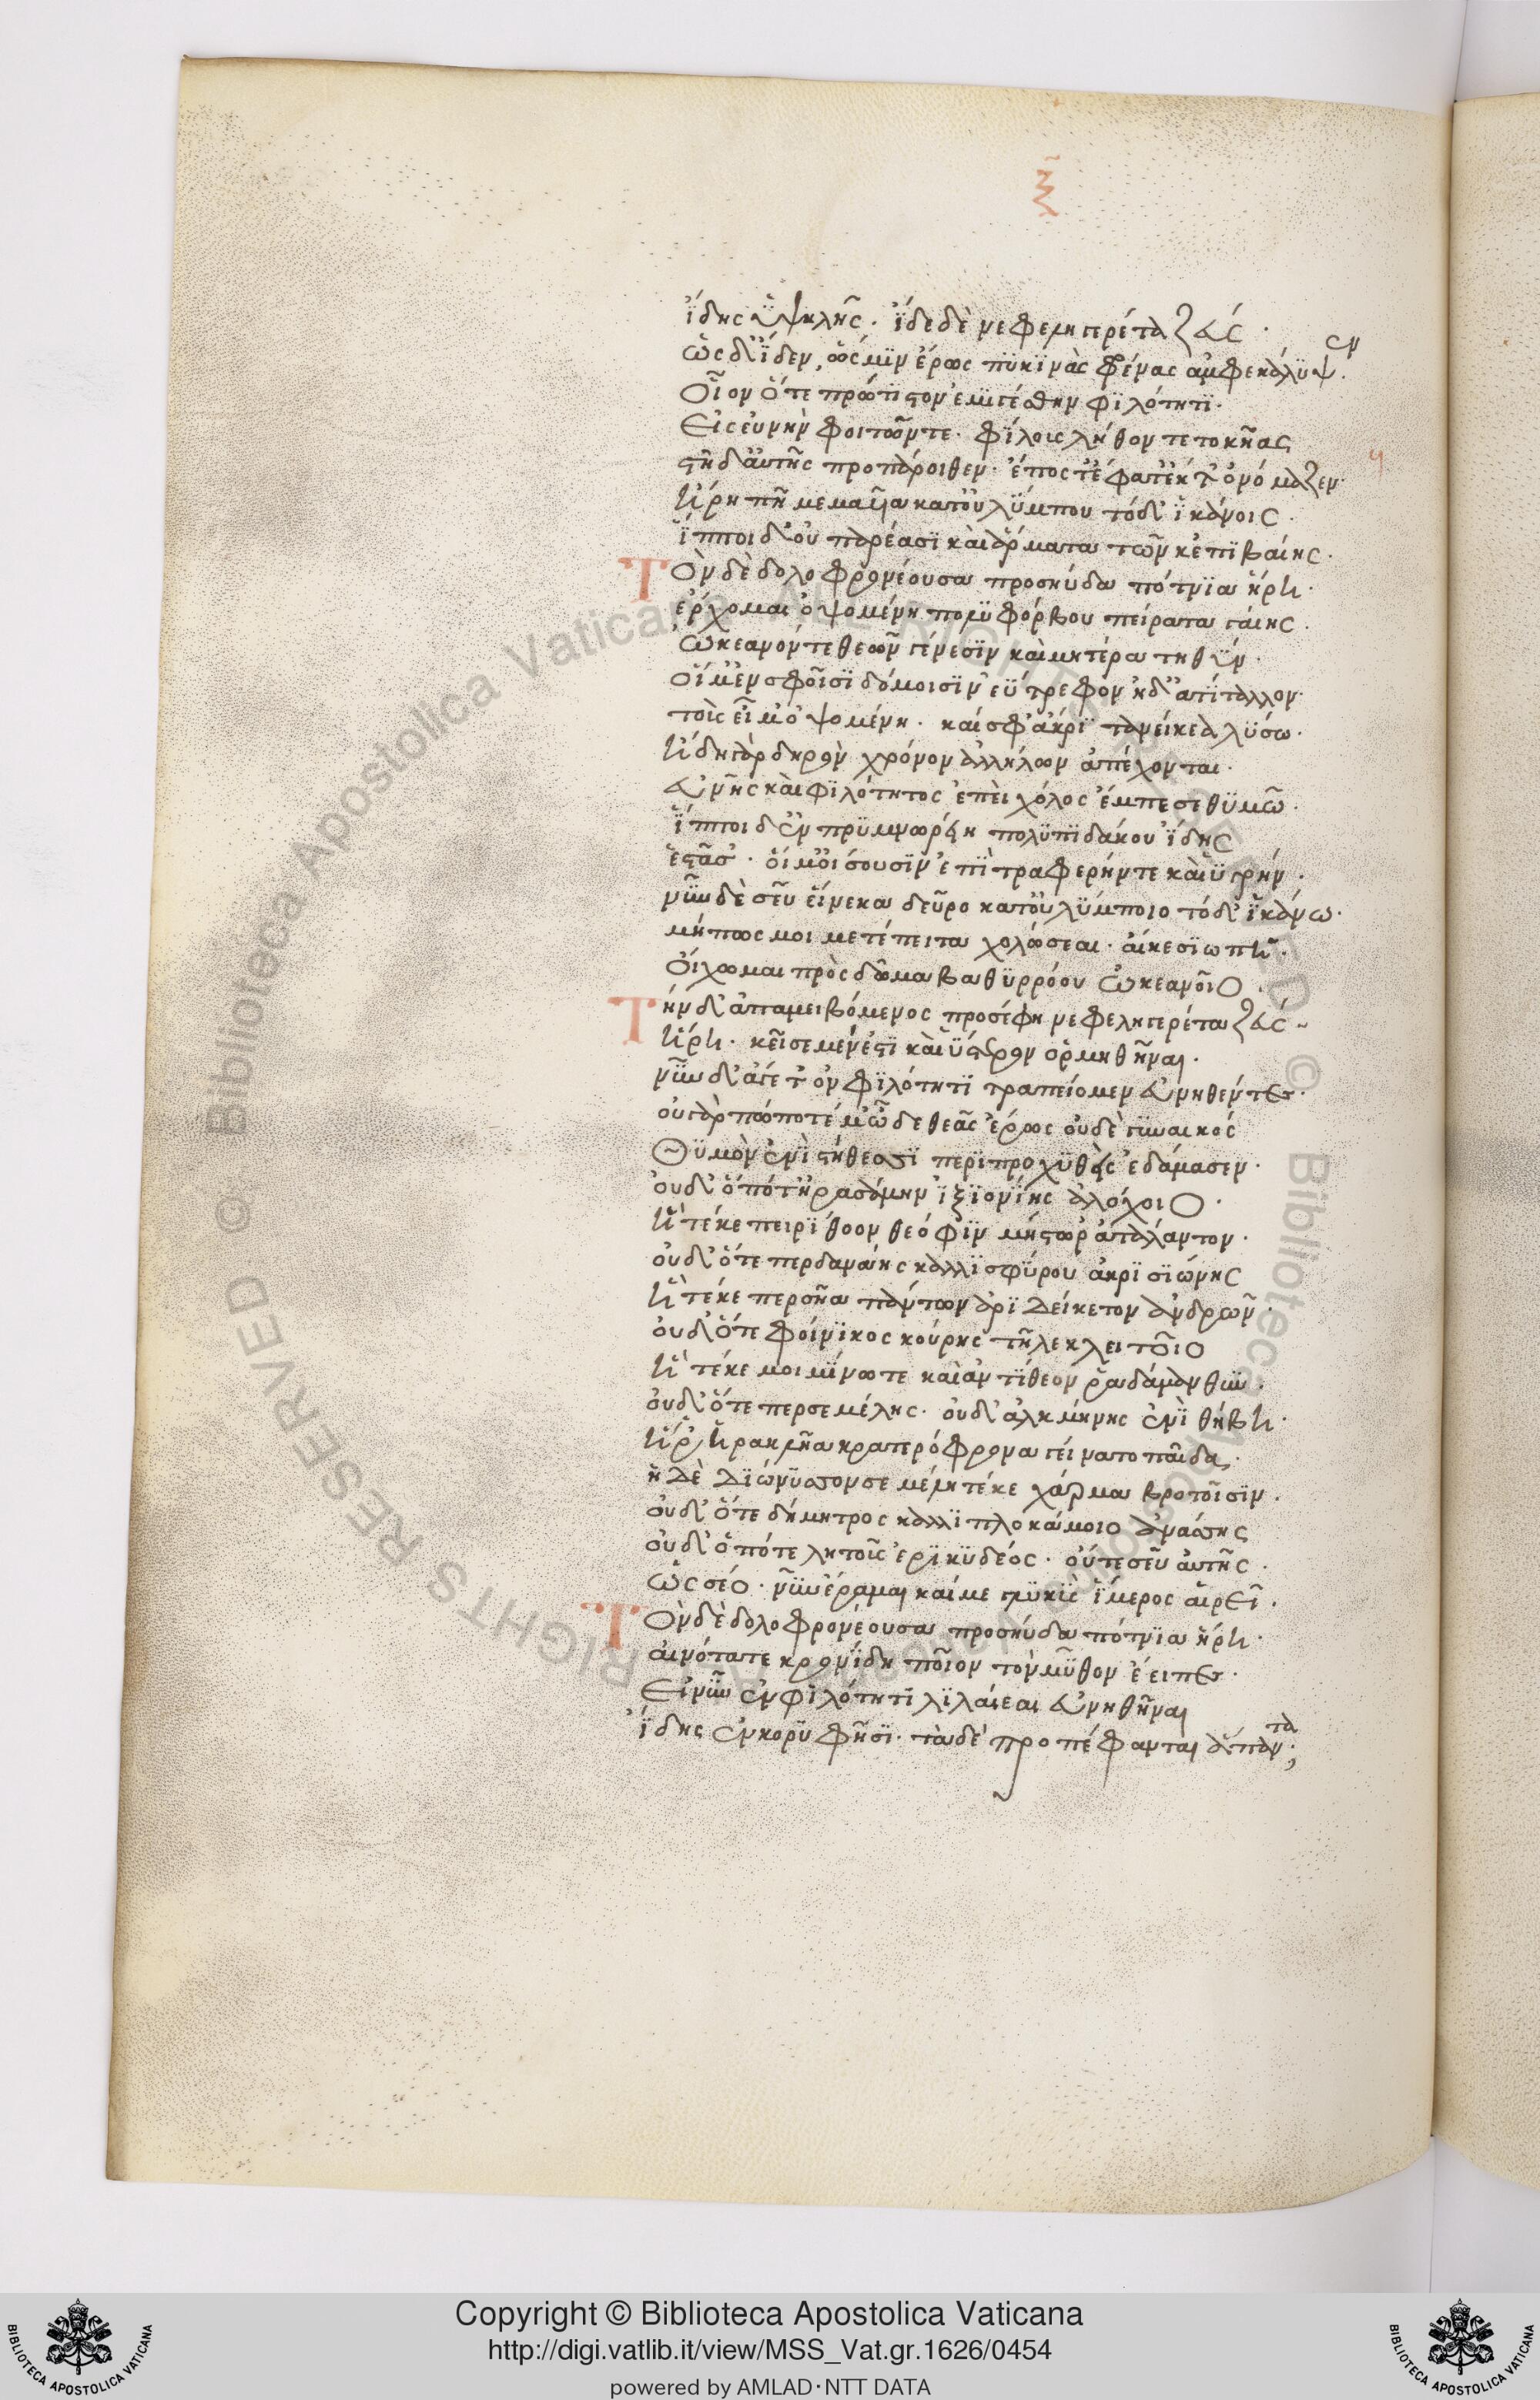 ξ̃
ἴδης ὑψηλῆς· ἴδε δὲ νεφεληγερέτα ζεύς·
ὡς δ' ἴδεν, ὥς μϊν ἔρως πϋκϊνὰς φρένας ἀμφεκάλϋψεν·
Οἷον ὅτε πρώτϊστον ἐμϊγέσθην φϊλότητϊ·
Εἰς εὐνὴν φοιτῶντε· φίλοις λήθοντε τοκῆας
στῆ δ' αὐτῆς προπάροιθεν· ἔπος τ' ἔφατ' ἔκ τ' ὀνόμαζεν·
ἥρη πῆ μεμαυῖα κατ' οὐλύμπου τόδ' ἱκάνοις·
ἵπποι δ' οὐ παρέασϊ καὶ ἅρματα τῶν κ' ἐπϊβαίης·
Τὸν δὲ δολοφρονέουσα προσηύδα πότνϊα ἥρη·
ἔρχομαι ὀψομένη πολϋφόρβου πείρατα γαίης·
Ὠκεανόντε θεῶν γένεσϊν καὶ μητέρα τηθύν·
Οἵ μ' ἐν σφοῖσϊ δόμοισϊν ἐϋ τρέφον ἠδ' ἀτίταλλον·
τοὺς εἶμ' ὀψομένη· καί σφ' ἄκρϊτα νείκεα λύσω·
ἤδη γὰρ δηρὸν χρόνον ἀλλήλων ἀπέχονται·
εὐνῆς καὶ φϊλότητος ἐπεὶ χόλος ἔμπεσε θϋμῶ·
ἵπποι δ' ἐν πρϋμνωρείη πολϋπϊδάκου ἴδης
ἑστᾶσ'· οἵ μ' οἴσουσϊν ἐπὶ τραφερήντε καὶ ὑγρήν·
νῦν δὲ σεῦ εἵνεκα δεῦρο κατ' οὐλύμποιο τόδ' ἱκάνω·
μήπως μοι μετέπειτα χολώσεαι· αἴκε σϊωπῆ·
Οἴχωμαι πρὸς δῶμα βαθϋρρόου Ὠκεανοῖο·
Τὴν δ' ἀπαμειβόμενος προσέφη νεφεληγερέτα ζεύς
ἥρη· κεῖσε μέν ἐστϊ καὶ ὕστερον ὁρμηθῆναι·
νῶϊ δ' ἄγε τ' ὂν φϊλότητϊ τραπείομεν εὐνηθέντες·
οὐ γὰρ πώποτέ μ' ὧδε θεᾶς ἔρως οὐδὲ γϋναικός
Θϋμὸν ἐνὶ στήθεσσϊ περϊπροχϋθεὶς ἐδάμασεν·
οὐδ' ὁπότ' ἠρασάμην ἰξϊονίης ἀλόχοιο·
ἣ τέκε πειρίθοον θεόφϊν μήστωρ' ἀτάλαντον·
οὐδ' ὅτε περ δανάης καλλϊσφύρου ἀκρϊσϊώνης
ἣ τέκε περσῆα πάντων ἀρϊδείκετον ἀνδρῶν·
οὐδ' ὅτε φοίνϊκος κούρης τῆλε κλειτοῖο
ἣ τέκε μοι μίνωτε καὶ ἀντίθεον ῥαδάμανθυν·
οὐδ' ὅτε περ σεμέλης· οὐδ' ἀλκμήνης ἐνὶ θήβη·
ἥρ' ἡρακλῆα κρατερόφρονα γείνατο παῖδα·
ἡ δὲ Δϊώνϋσον σεμέλη τέκε χάρμα βροτοῖσϊν·
οὐδ' ὅτε δήμητρος καλλϊπλοκάμοιο ἀνάσσης
οὐδ' ὁπότε λητοῦς ἐρϊκϋδέος· οὔτε σεῦ αὐτῆς·
ὡς σέο· νῦν ἔραμαι καί με γλϋκὺς ἵμερος αἱρεῖ·
Τὸν δὲ δολοφρονέουσα προσηύδα πότνϊα ἥρη·
αἰνότατε κρονίδη ποῖον τὸν μῦθον ἔειπες·
Εἰ νῦν ἐν φϊλότητϊ λϊλαίεαι εὐνηθῆναι
ἴδης ἐν κορϋφῆσϊ· τὰ δὲ προπέφανται ἅπαντα;
Copyright © Biblioteca Apostolica Vaticana
http://digi.vatlib.it/view/MSS_Vat.gr.1626/0454
powered by AMLAD·NTT DATA
BIBLIOTECA APOSTOLICA VATICANA
BIBLIOTECA APOSTOLICA VATICANA